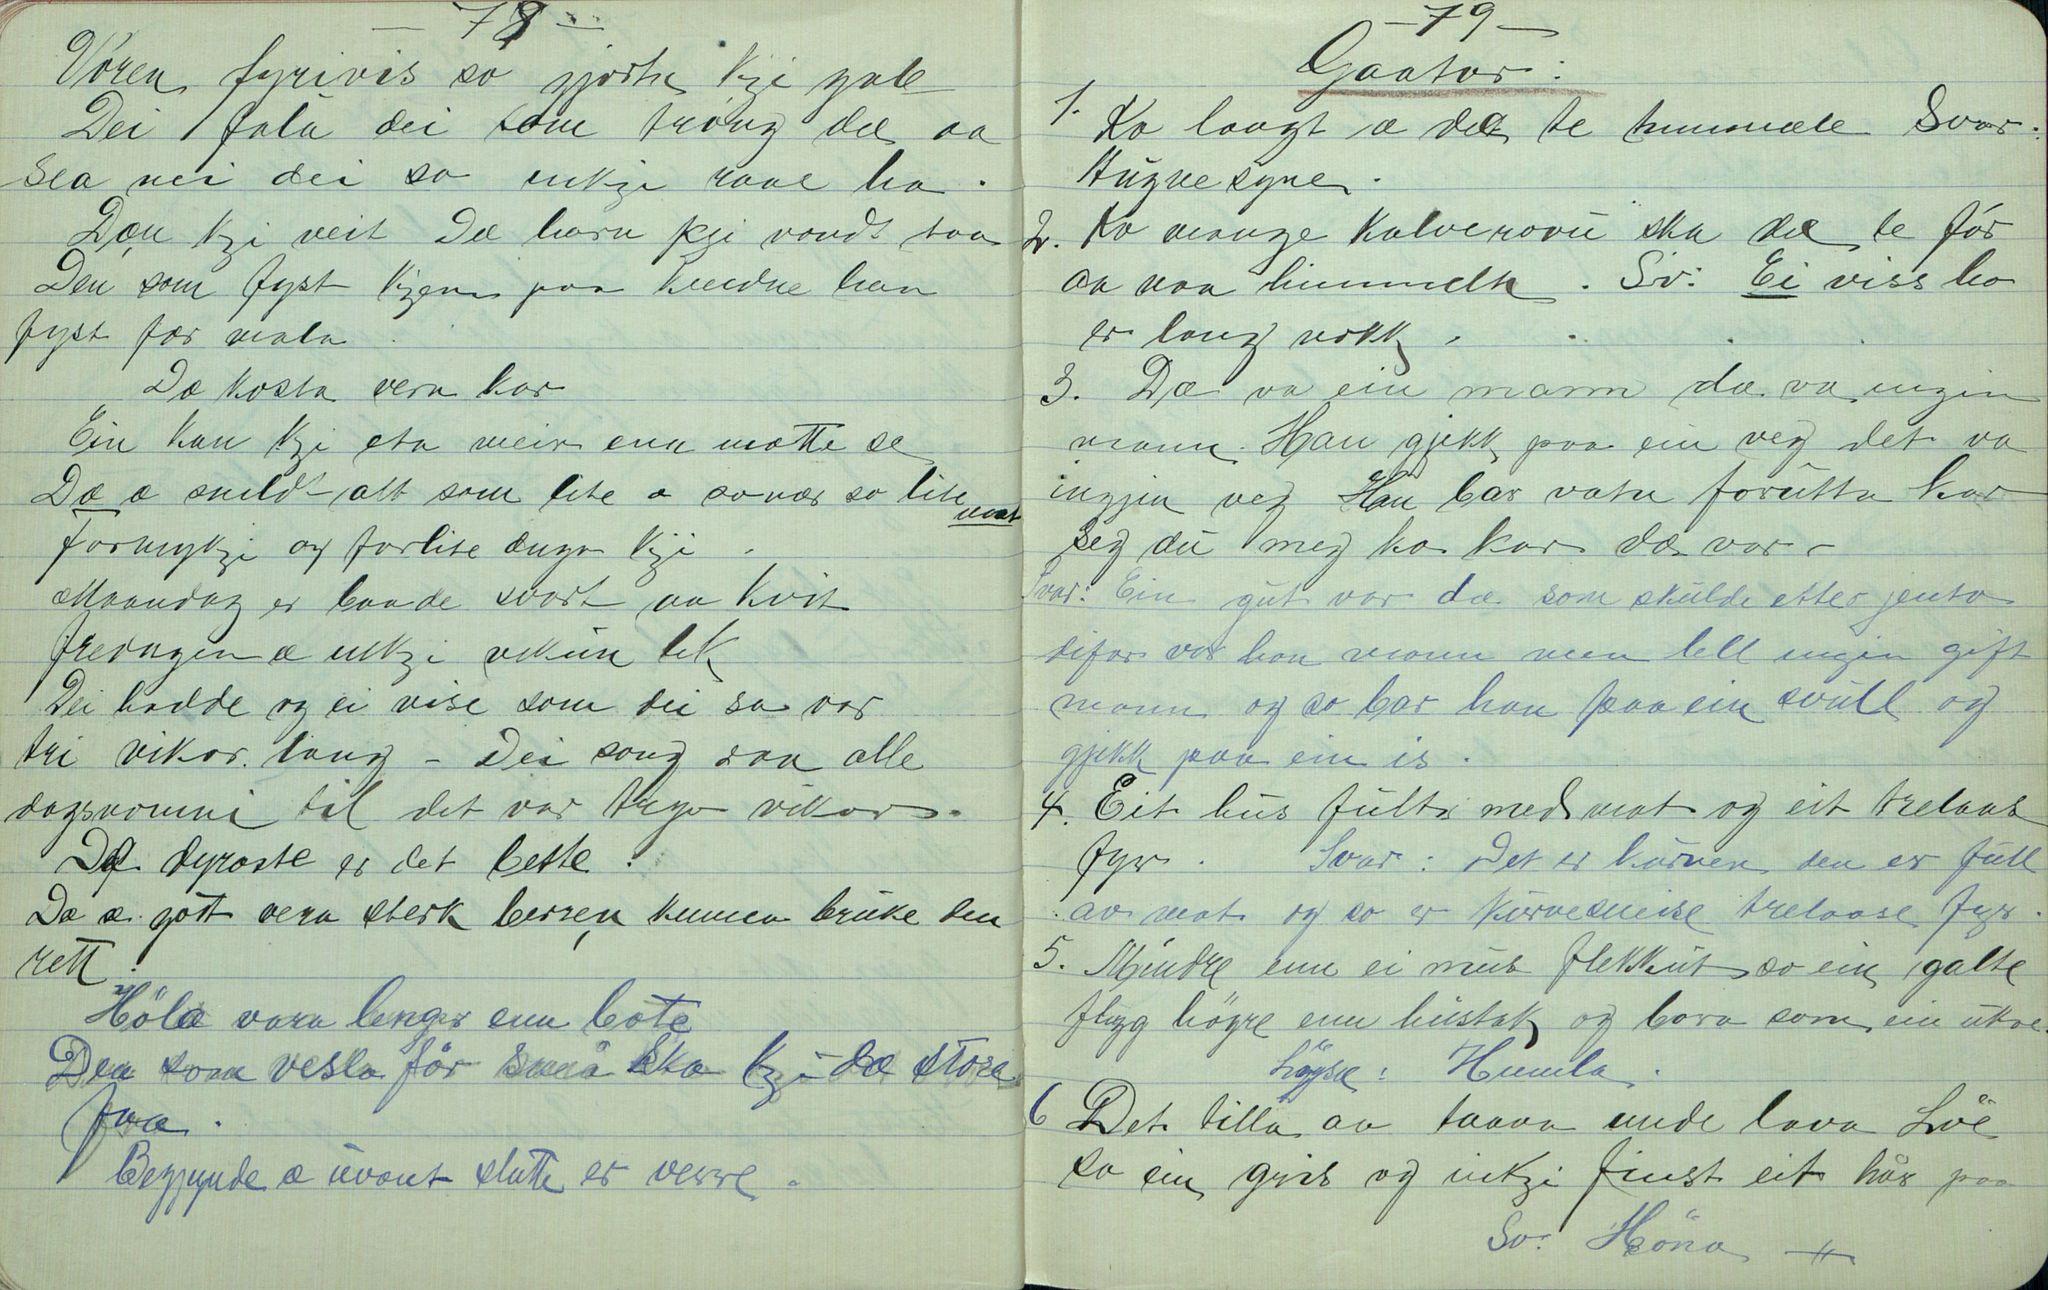 - 78 -
Voren fyrivis so gjorte kji gale
Dei fala dei som trong dæ aa
sea nei dei so inkji raae ha.
Dæn kji veit Dæ havn kji vondt taa
Den som fyst kjem paa kvedne han
fyst fær mala.
Dæ kosta vera kar
Ein kan kji eta meir enn mætte se
Dæ æ snildt alt som lite æ so nær so lite mat
formykji og forlite duga kji.
Maandag er baade svart aa kvit
fredagen æ inkji vikun lik
Dei hadde og ei vise som dei sa var
tri vikor lang - Dei song raa alle
dagsnomni til det var trya vikor.
Dæ dyraste er det beste.
Dæ æ gott vera sterk berren kunna bruke den
rett.
Höle vara lenger enn bote
Den som vesla før små ska kji dæ store
faa.
Begynde æ uvant slutte er verre.
- 79 -
Gaator:
1. Ko langt æ dæ te himmele Svar:
Augnesyne.
2. Ko mange kalverovu ska dæ te før
aa naa himmeln. Sv: Ei viss ho
er lang nokk.
3. Dæ va ein mann dæ va ingin
mann. Han gjekk paa ein veg det va
ingjin veg Han bar vatn forutta kar
Seg du meg ko kar dæ var -
Svar: Ein gut var dæ som skulde etter jento
difor var han mann men lell ingin gift
mann og so bar han paa ein svull og
gjekk paa ein is.
4. Eit hus fullt med mat og eit trelaas
fyr. Svar: Det er kurven den er full
av mat og so er kurvesneise trelaase fyr.
5. Mindre enn ei mus flekkut so ein galte
flyg högre enn hustak og bara som ein ukse.
Løyse: Humla.
6 Det tilla aa taava unde lava Lvë
so ein gris og inkji finst eit hår paa
Sv: Höna